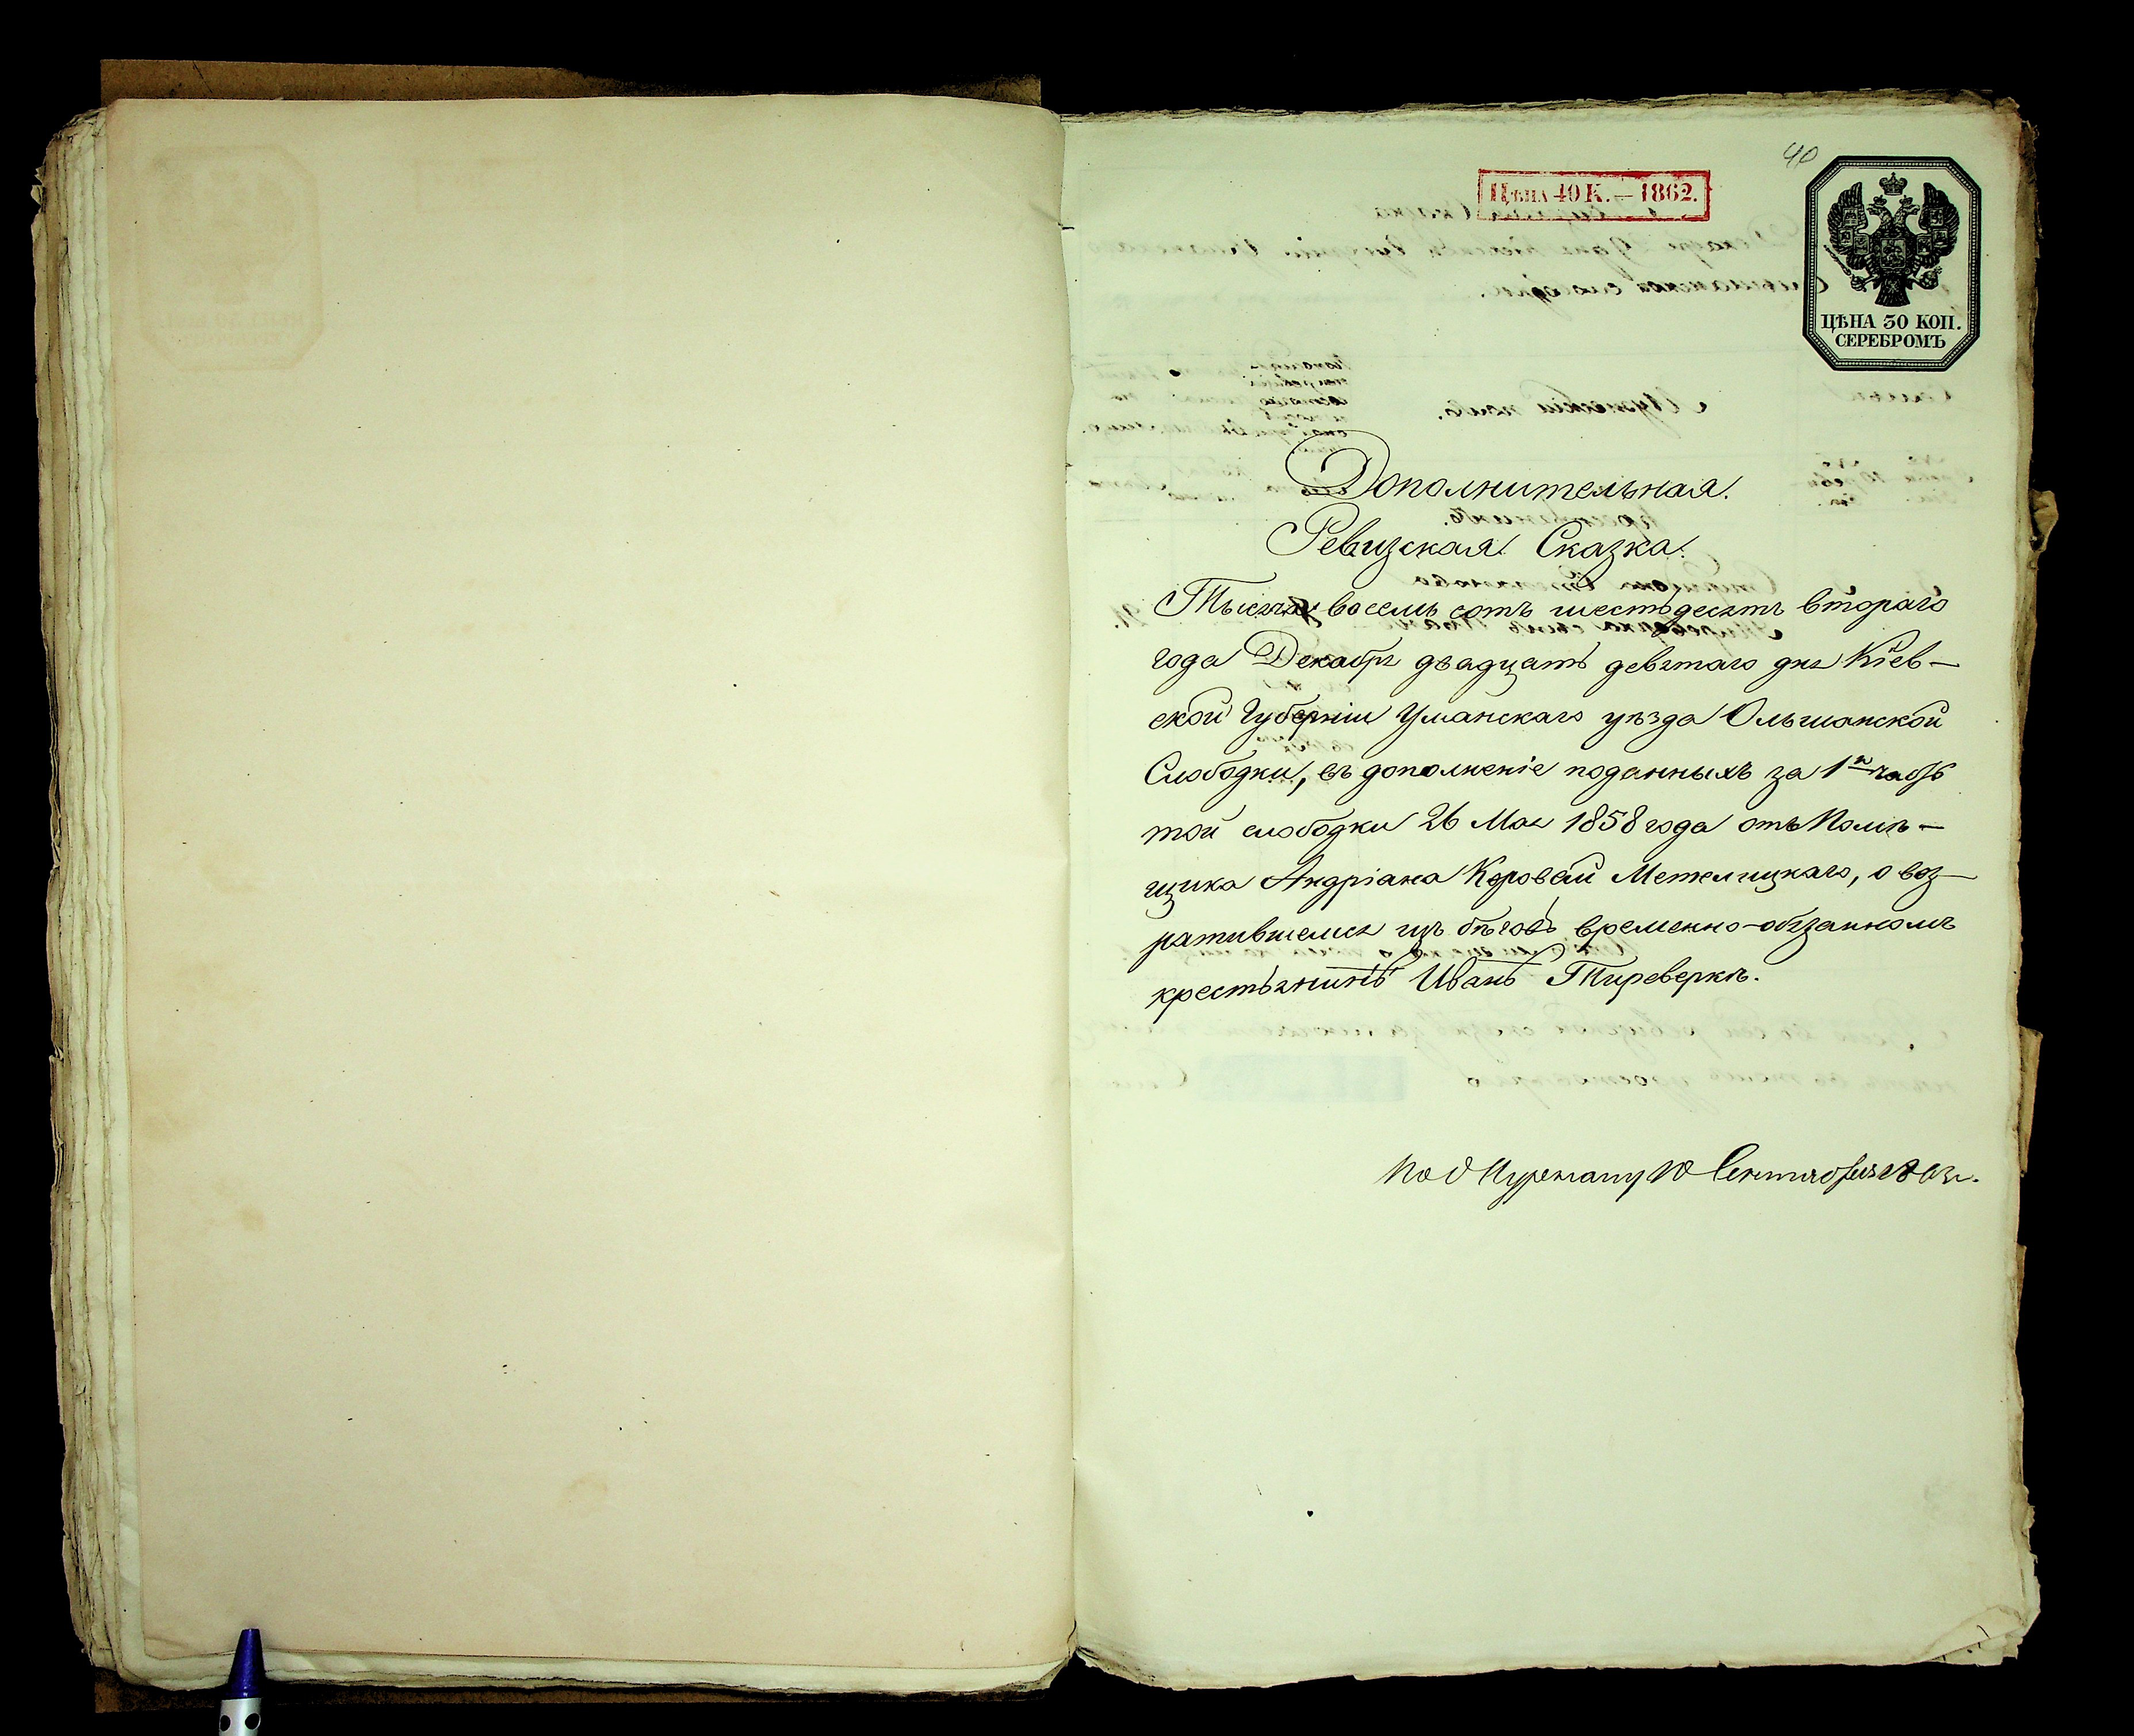 40
Цѣна 40 К. — 1862.
ЦѢНА 30 КОП.
СЕРЕБРОМЪ
Дополнительная.
Ревизская Сказка.
Тысяча восемь сотъ шестьдесятъ втораго
года Декабря двадцать девятаго дня Кіев-
ской Губерніи Уманскаго уѣзда Ольшанской
Слободки, въ дополненіе поданныхъ за 1ю часть
той слободки 26 Мая 1858 года отъ Помѣ-
щика Андріана Коровай Метелицкаго, о воз-
ратившемся изъ бѣговъ временно-обязанномъ
крестьянинѣ Иванѣ Тиреверкѣ.
10 Сентября 1863 г.